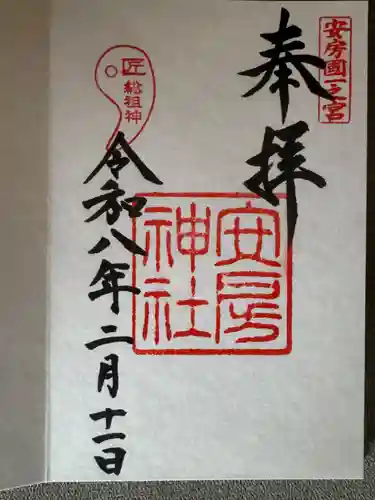 安房國一之宮
奉拝
安房
神社
匠
総祖神
令和八年二月十一日